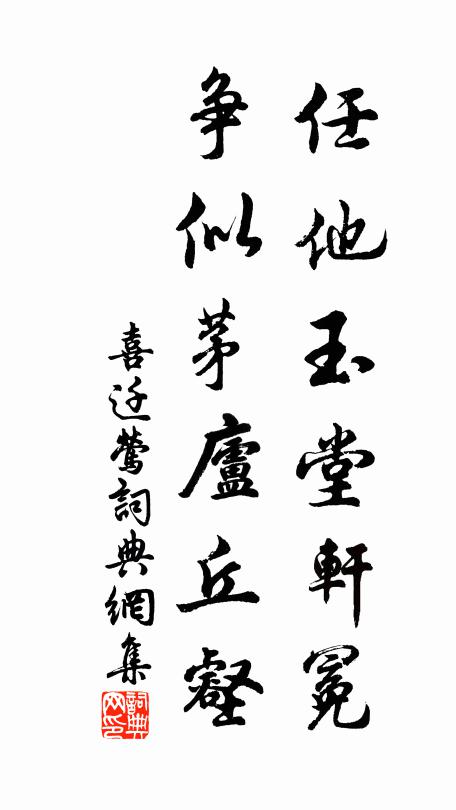 任他玉堂軒冕
争似茅廬丘壑
喜迁鶯詞典網集
詞典网印